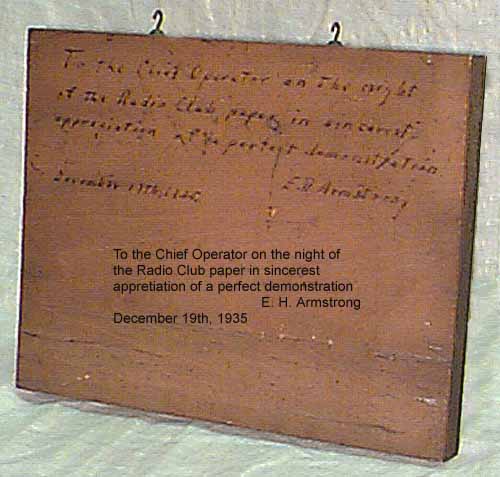 To the Chief Operator on the night
of the Radio Club paper in sincerest
appreciation of the perfect demonstration
December 19th, 1935
E H Armstrong
To the Chief Operator on the night of
the Radio Club paper in sincerest
appretiation of a perfect demonstration
E. H. Armstrong
December 19th, 1935